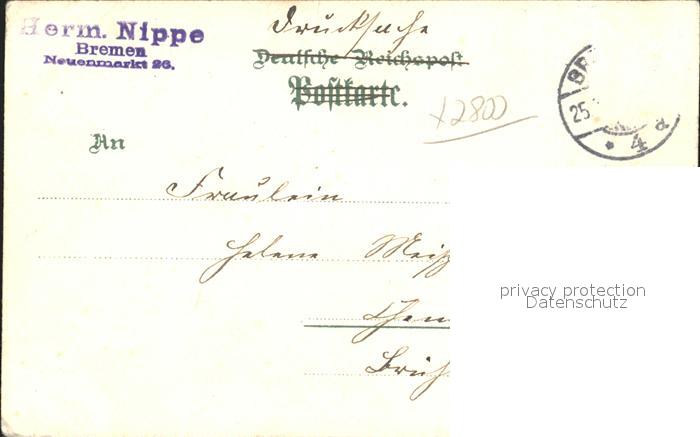 Herm. Nippe
Bremen
Neuenmarkt 26.
Drucksache
Deutsche Reichspost
Postkarte.
+2800
25
4
An
Fräulein
Helene
privacy protection
Datenschutz